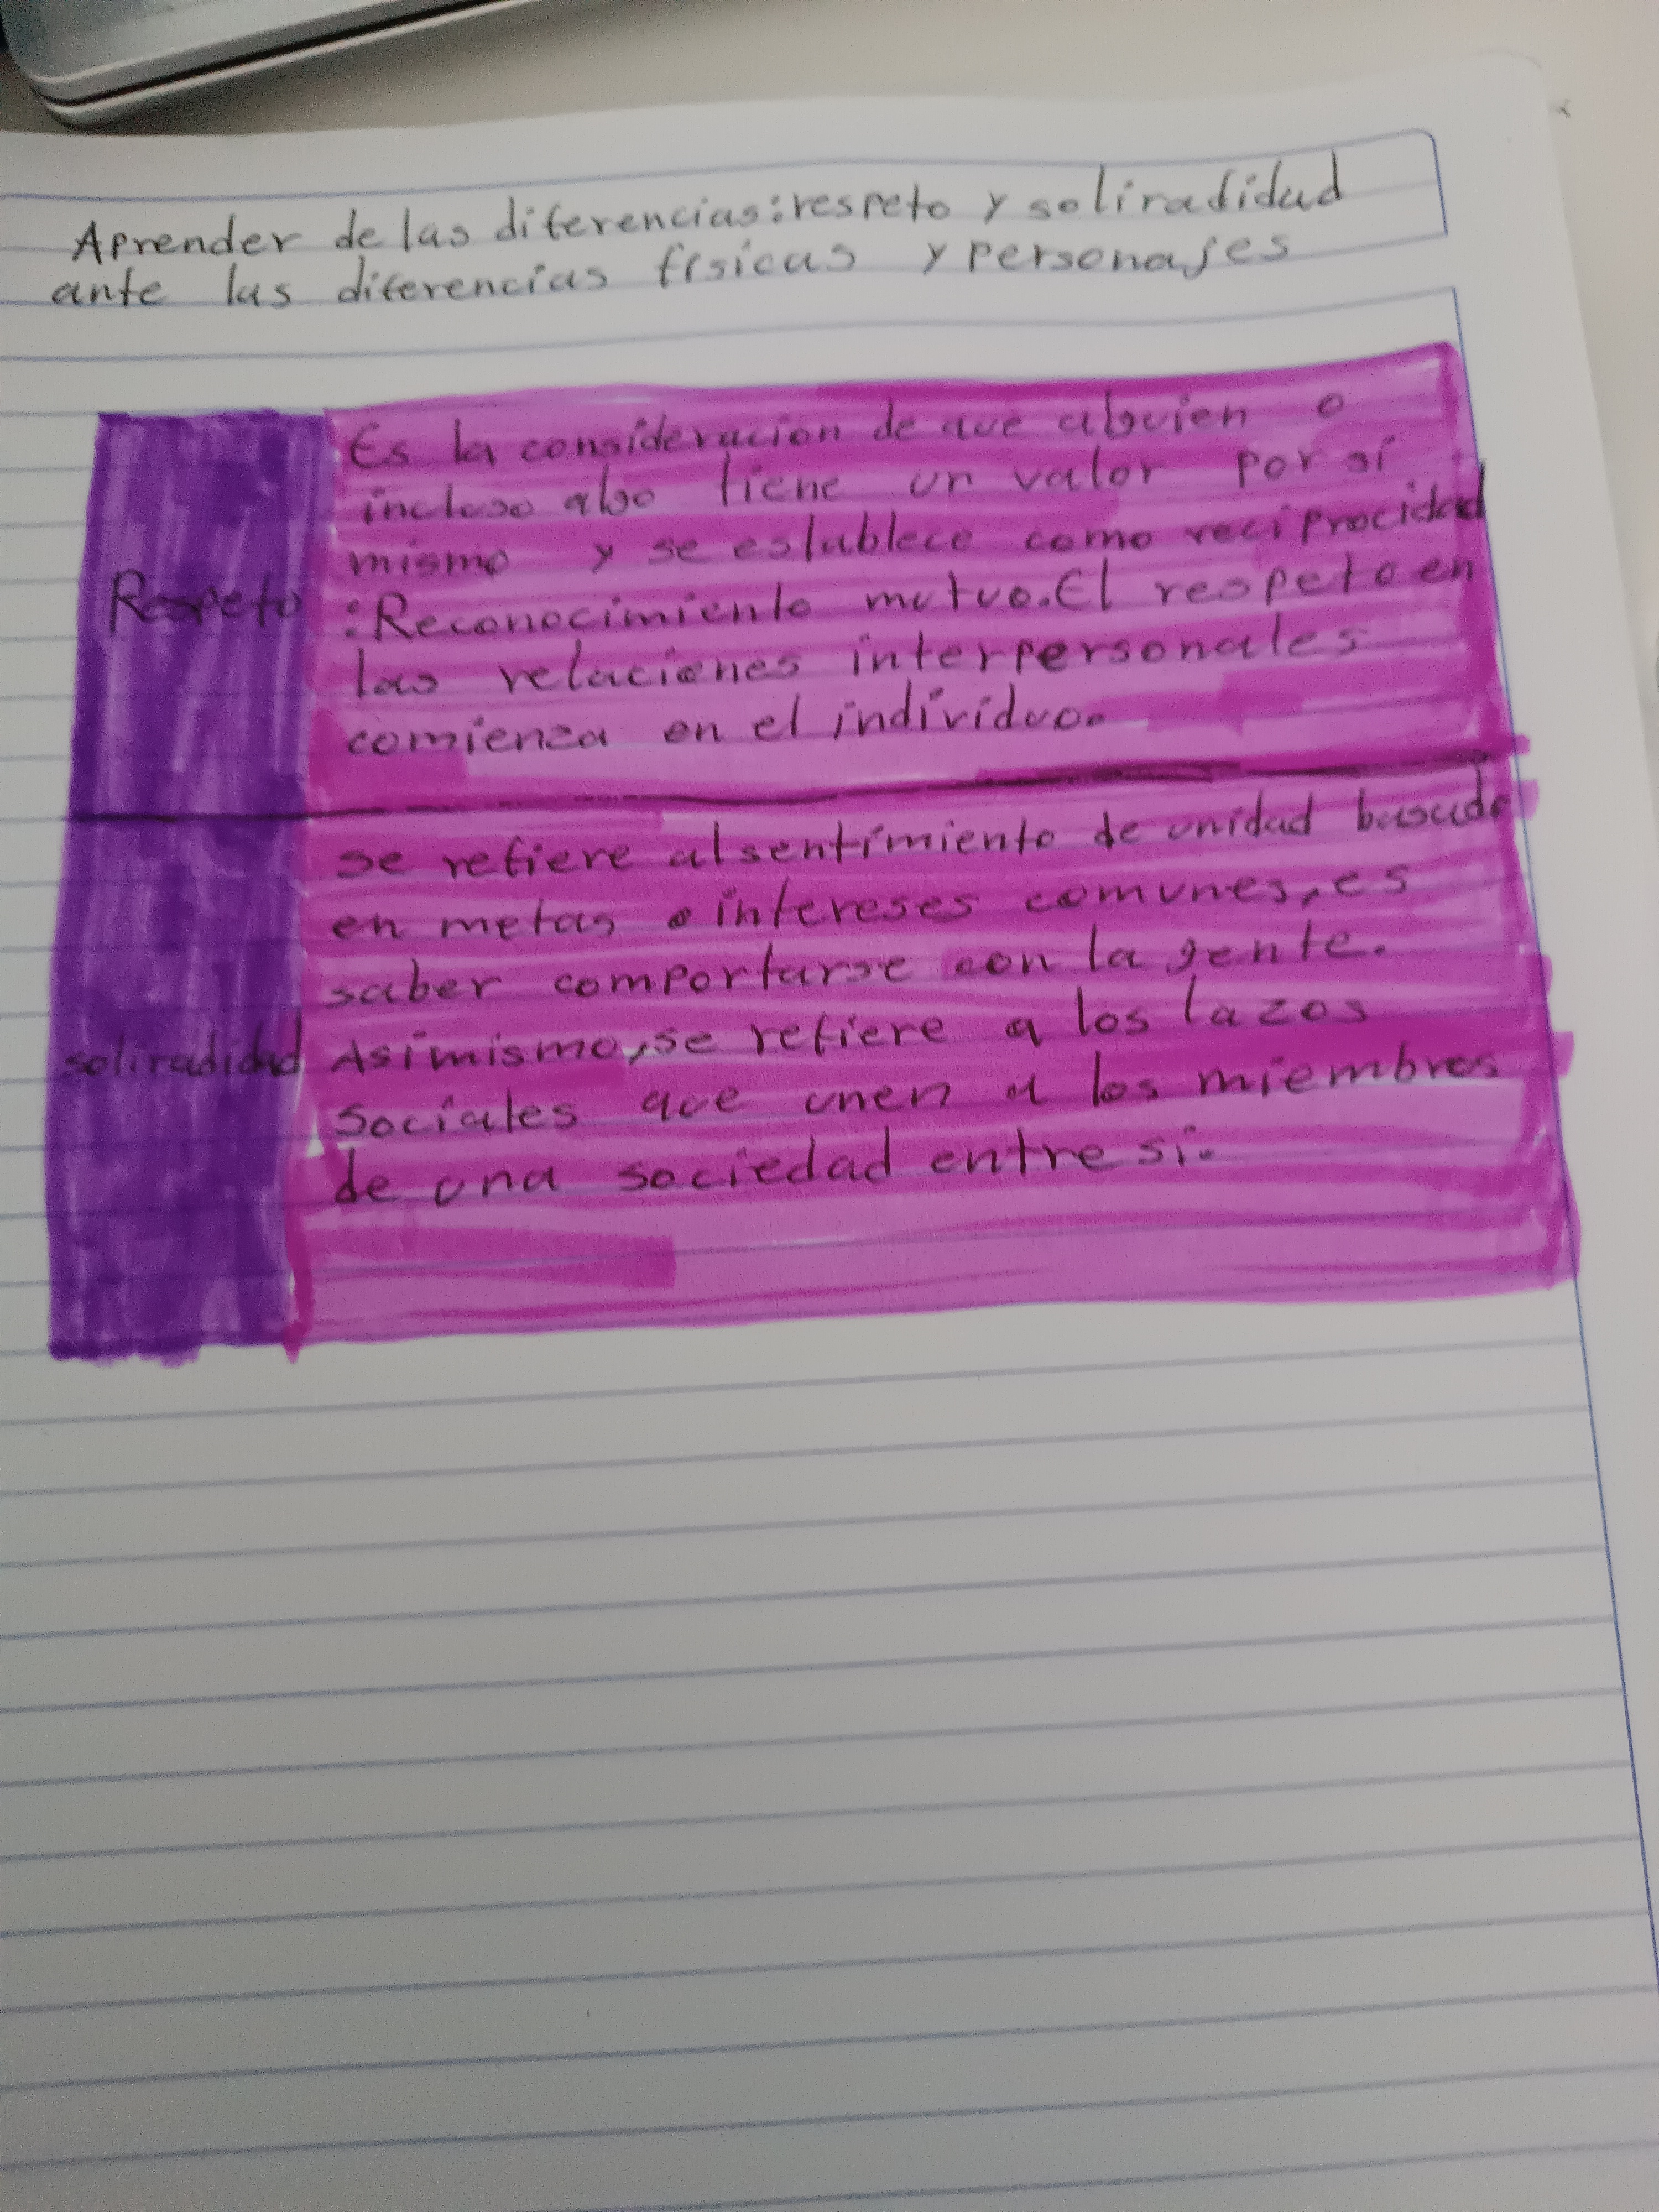 Aprender de las diferencias: respeto y soliradidad
ante las diferencias físicas y personajes
Respeto
Es la consideracion de que alguien o
incluso algo tiene un valor por sí
mismo y se establece como reciprocidad
: Reconocimiento mutuo. El respeto en
las relaciones interpersonales
comienza en el individuo.
soliradidad
se refiere al sentimiento de unidad basado
en metas o intereses comunes, es
saber comportarse con la gente.
Asimismo, se refiere a los lazos
sociales que unen a los miembros
de una sociedad entre si.